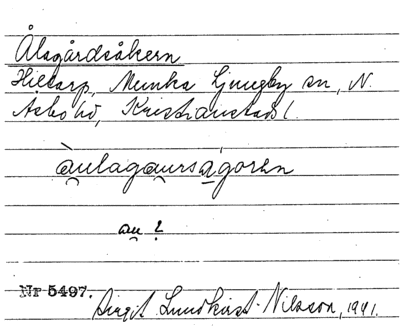 Ålsgårdsåkern
Hillarp, Munka Ljungby sn, N.
Åsbo hd, Kristianstads l.
àu̯lagau̯rságoran
au̯ ?
Nr 5497. Birgit Lundkvist-Nilsson, 1941.